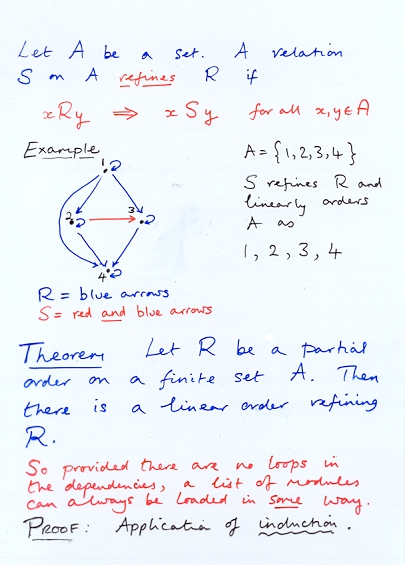 Let A be a set. A relation
S on A refines R if
xRy ⟹ xSy for all x,y∈A
Example
A = {1,2,3,4}
S refines R and
linearly orders
A as
1, 2, 3, 4
1
2
3
4
R = blue arrows
S = red and blue arrows
Theorem Let R be a partial
order on a finite set A. Then
there is a linear order refining
R.
So provided there are no loops in
the dependencies, a list of modules
can always be loaded in some way.
PROOF: Application of induction.